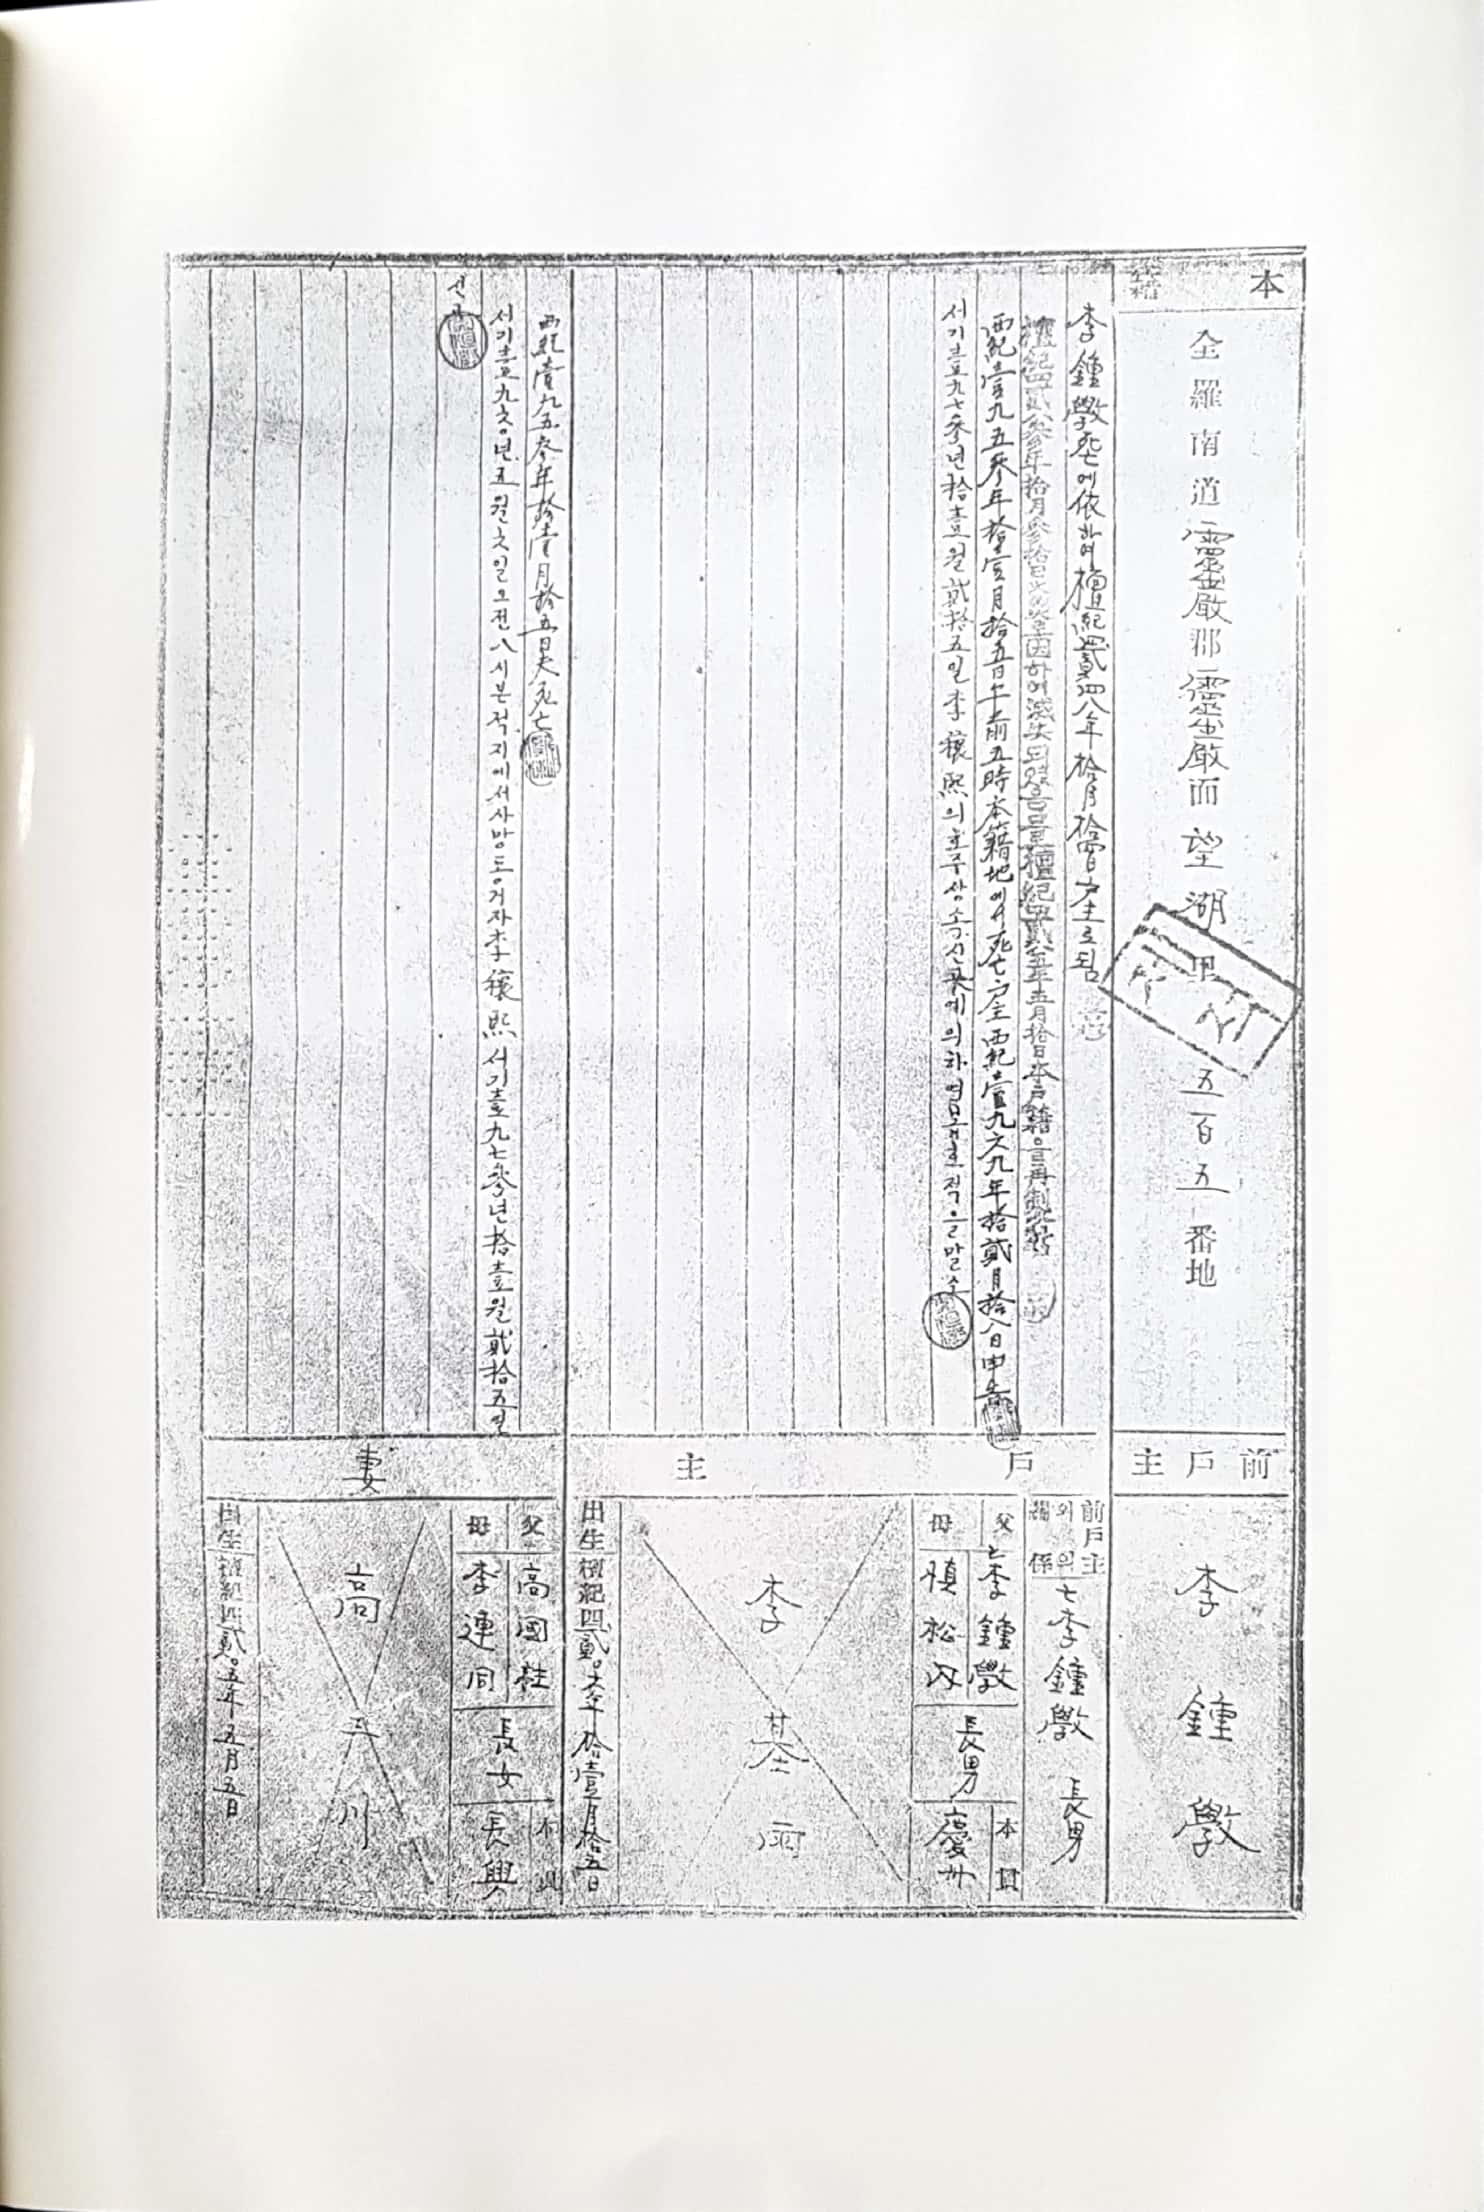 本籍
全羅南道靈巖郡靈巖面望湖里五百五番地
前戶主
李鍾學
李鍾學死亡에依하여檀紀四貳四八年拾月拾四日戶主로됨
檀紀四貳八參年拾月參拾日火災로因하여滅失되였음으로檀紀四貳八五年五月拾日本戶籍을再製
西紀壹九五參年拾壹月拾五日午前五時本籍地에서死亡戶主西紀壹九六九年拾貳月拾八日申告
서기壹九七參년拾壹월貳拾五일李穰熙의호주상속신고에의하여본호적을말소
戶主
前戶主와의關係
亡李鍾學 長男
父 亡李鍾學
母 愼松內
長男
本貫 慶州
李基雨
出生 檀紀四貳〇六年拾壹月拾五日
西紀壹九五參年拾壹月拾五日夫死亡
서기壹九六〇년五월六일오전八시본적지에서사망동거자李穰熙서기壹九七參년拾壹월貳拾五일
신고
妻
父 高國柱
母 李連同
長女
本貫 長興
高
川
出生 檀紀四貳〇五年五月五日